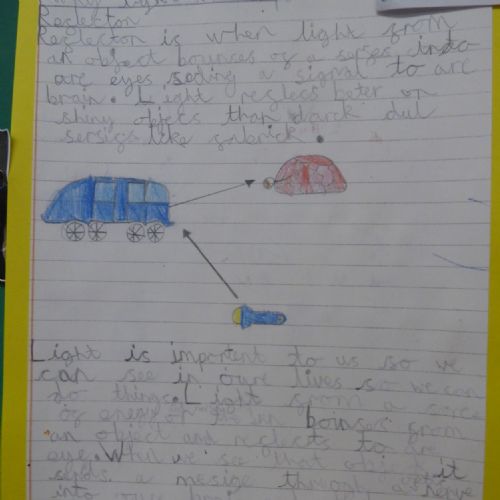 Reslekton
Reslekton is when light from
an object bounces of a serses into
are eyes seding a signal to are
brain. Light reglecs beter on
shiny objects than darck dul
sersigs like fabrick.
Light is importent to us so we
can see in oure lives so we can
do things. Light from a sorce
of energy or the sun bounses from
an object and reglects to are
eye. When we see that object it
sends a mesige through a nerve
into our